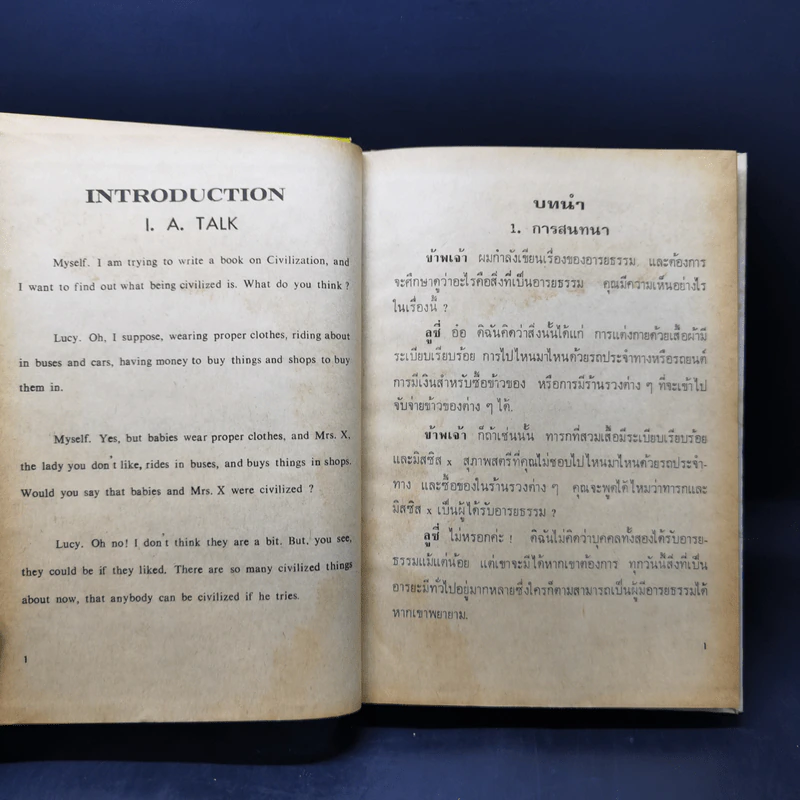 INTRODUCTION
I. A. TALK
Myself. I am trying to write a book on Civilization, and
I want to find out what being civilized is. What do you think ?
Lucy. Oh, I suppose, wearing proper clothes, riding about
in buses and cars, having money to buy things and shops to buy
them in.
Myself. Yes, but babies wear proper clothes, and Mrs. X,
the lady you don't like, rides in buses, and buys things in shops.
Would you say that babies and Mrs. X were civilized ?
Lucy. Oh no! I don't think they are a bit. But, you see,
they could be if they liked. There are so many civilized things
about now, that anybody can be civilized if he tries.
1
บทนำ
1. การสนทนา
ข้าพเจ้า ผมกำลังเขียนเรื่องของอารยธรรม และต้องการ
จะศึกษาดูว่าอะไรคือสิ่งที่เป็นอารยธรรม คุณมีความเห็นอย่างไร
ในเรื่องนี้ ?
ลูซี่ อ๋อ ดิฉันคิดว่าสิ่งนั้นได้แก่ การแต่งกายด้วยเสื้อผ้ามี
ระเบียบเรียบร้อย การไปไหนมาไหนด้วยรถประจำทางหรือรถยนต์
การมีเงินสำหรับซื้อข้าวของ หรือการมีร้านรวงต่าง ๆ ที่จะเข้าไป
จับจ่ายข้าวของต่าง ๆ ได้.
ข้าพเจ้า ก็ถ้าเช่นนั้น ทารกที่สวมเสื้อมีระเบียบเรียบร้อย
และมิสซิส x สุภาพสตรีที่คุณไม่ชอบไปไหนมาไหนด้วยรถประจำ-
ทาง และซื้อของในร้านรวงต่าง ๆ คุณจะพูดได้ไหมว่าทารกและ
มิสซิส x เป็นผู้ได้รับอารยธรรม ?
ลูซี่ ไม่หรอกค่ะ ! ดิฉันไม่คิดว่าบุคคลทั้งสองได้รับอารย-
ธรรมแม้แต่น้อย แต่เขาจะมีได้หากเขาต้องการ ทุกวันนี้สิ่งที่เป็น
อารยะมีทั่วไปอยู่มากหลายซึ่งใครก็ตามสามารถเป็นผู้มีอารยธรรมได้
หากเขาพยายาม.
1